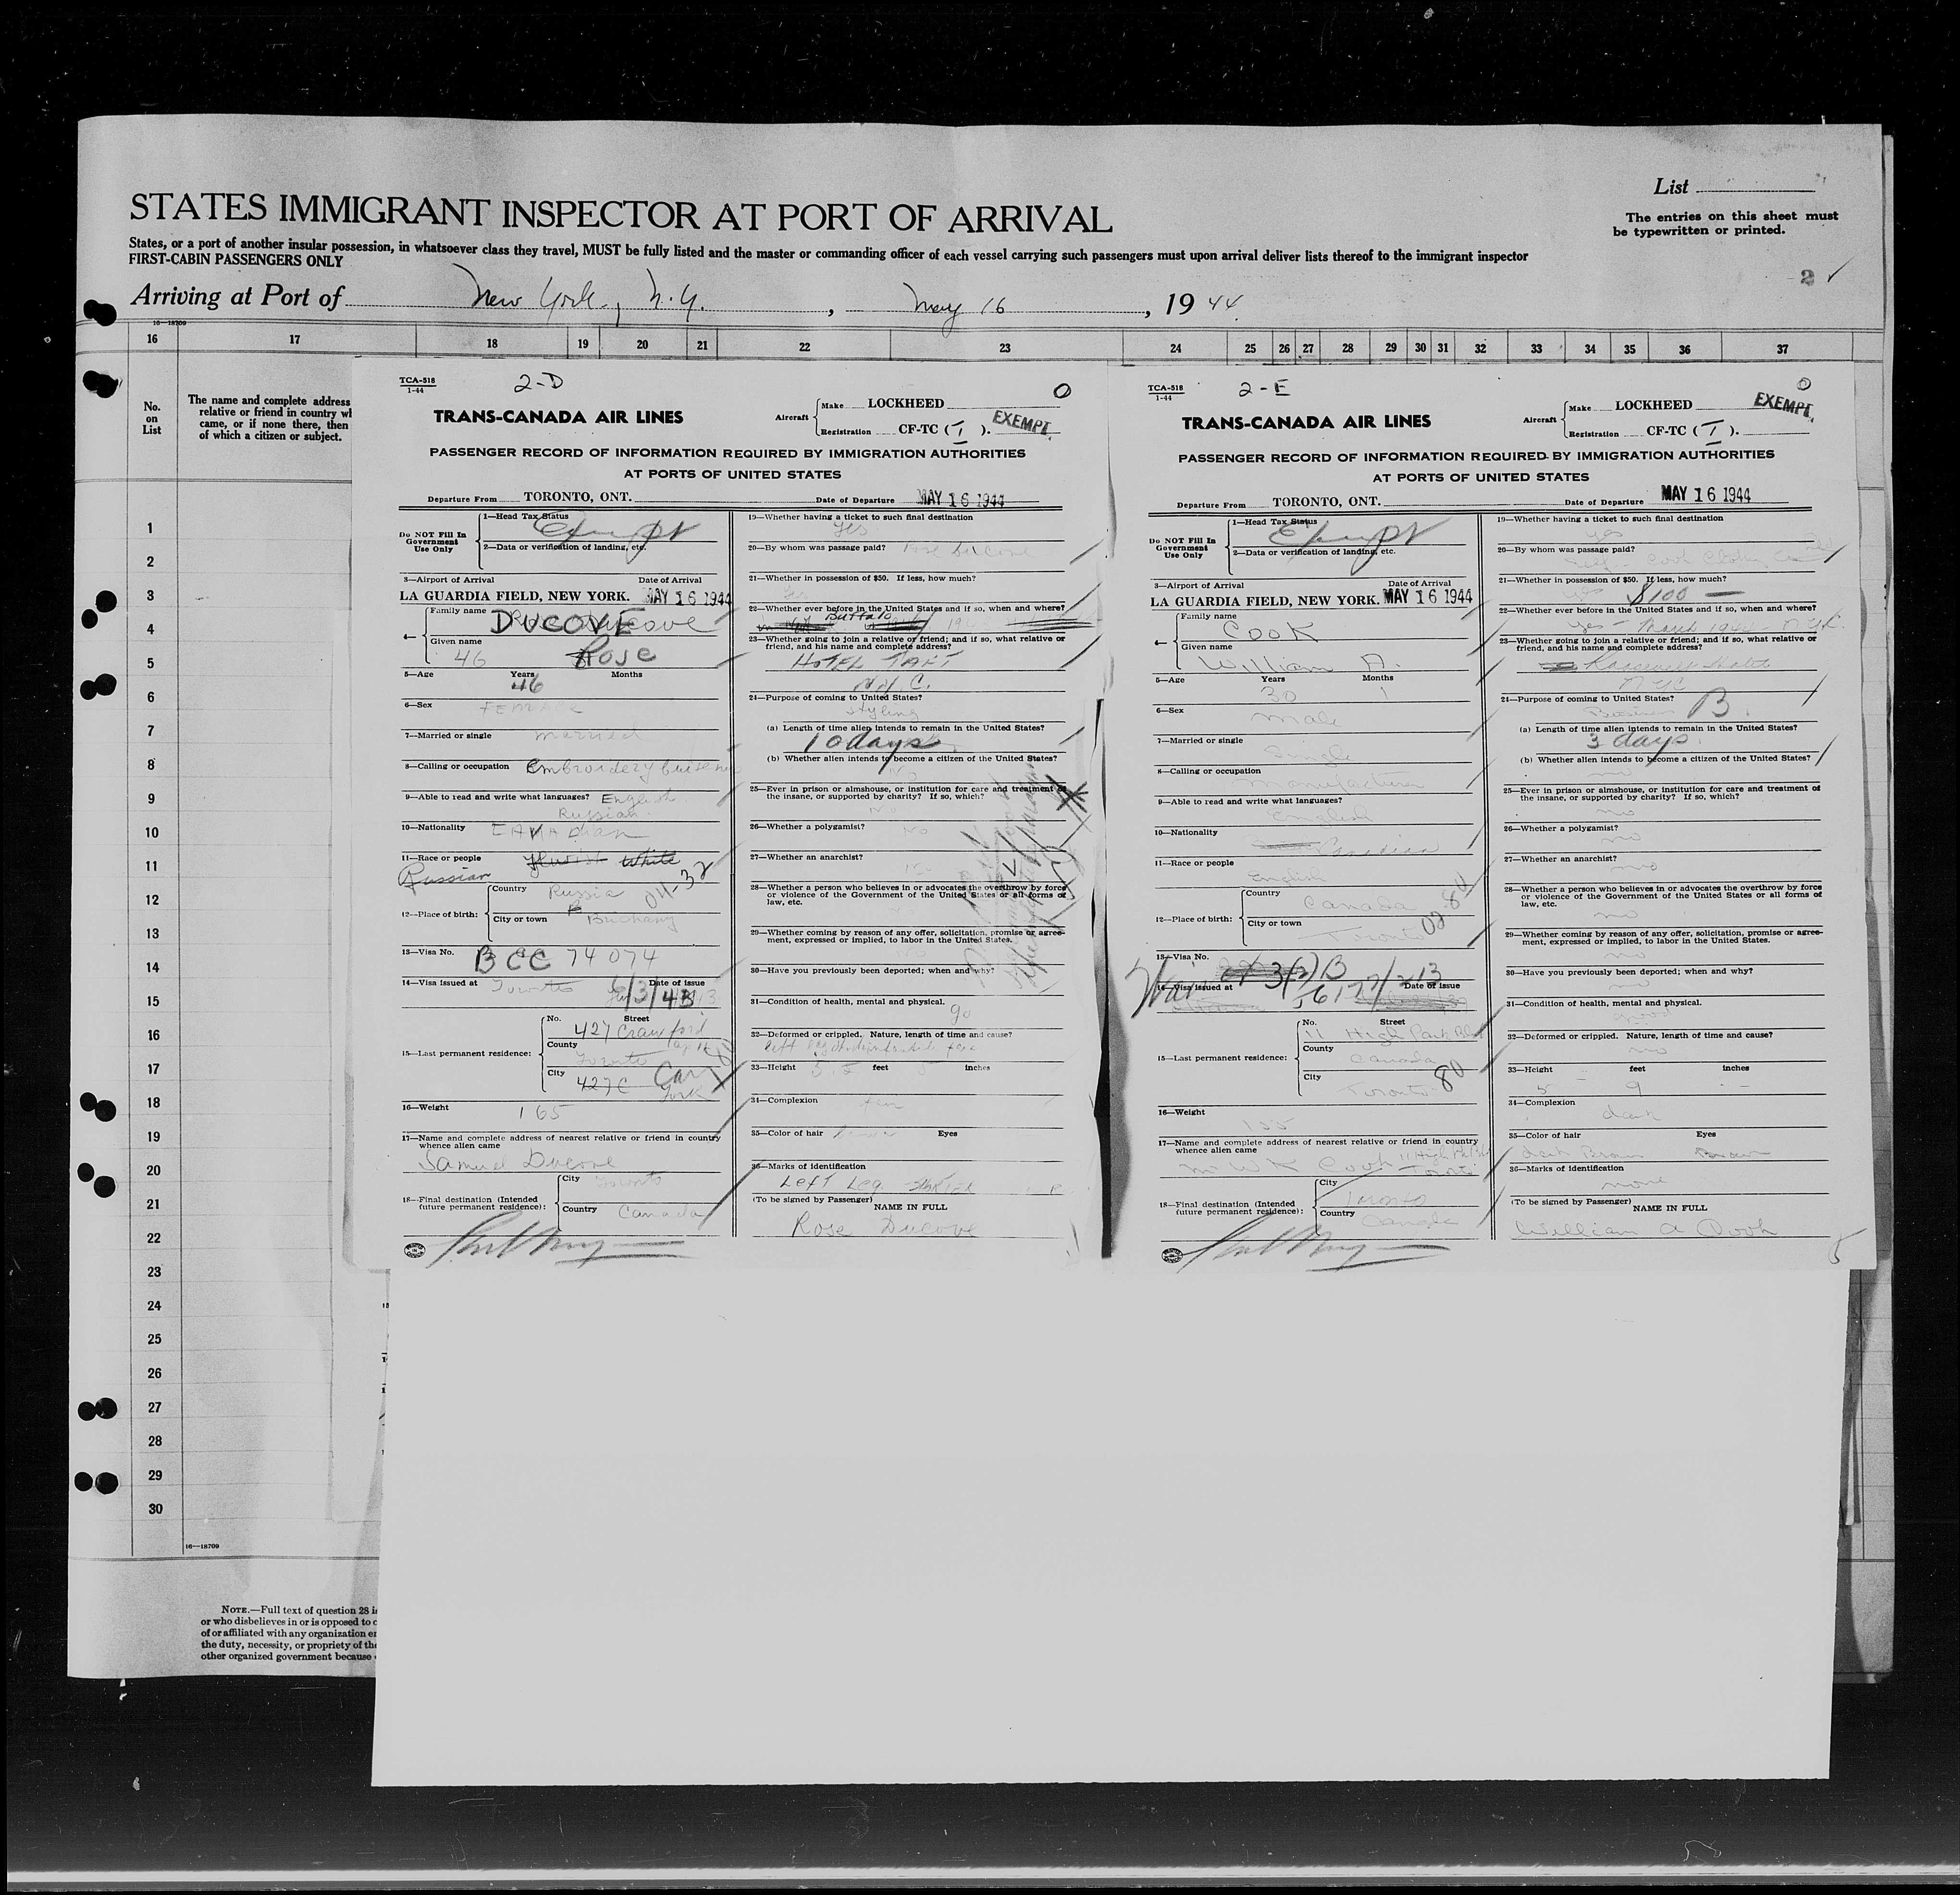 List
STATES IMMIGRANT INSPECTOR AT PORT OF ARRIVAL
The entries on this sheet must
be typewritten or printed.
States, or a port of another insular possession, in whatsoever class they travel, MUST be fully listed and the master or commanding officer of each vessel carrying such passengers must upon arrival deliver lists thereof to the immigrant inspector
FIRST-CABIN PASSENGERS ONLY
2
Arriving at Port of New York, N.Y., May 16, 1944
16—18709
16 17 18 19 20 21 22 23 24 25 26 27 28 29 30 31 32 33 34 35 36 37
No.
on
List
The name and complete address
relative or friend in country wh
came, or if none there, then
of which a citizen or subject.
1
2
3
4
5
6
7
8
9
10
11
12
13
14
15
16
17
18
19
20
21
22
23
24
25
26
27
28
29
30
16—18709
NOTE.—Full text of question 28 is
or who disbelieves in or is opposed to o
of or affiliated with any organization en
the duty, necessity, or propriety of the
other organized government because
TCA-518
1-44
2-D
O
TRANS-CANADA AIR LINES
Aircraft
Make LOCKHEED
Registration CF-TC ( T ).
EXEMPT.
PASSENGER RECORD OF INFORMATION REQUIRED BY IMMIGRATION AUTHORITIES
AT PORTS OF UNITED STATES
Departure From TORONTO, ONT.
Date of Departure MAY 16 1944
Do NOT Fill In
Government
Use Only
1—Head Tax Status
Exempt
2—Data or verification of landing, etc.
3—Airport of Arrival Date of Arrival
LA GUARDIA FIELD, NEW YORK. MAY 16 1944
4—
Family name DUCOVE
Given name Rose
46
5—Age Years Months
46
6—Sex FEMALE
7—Married or single married
8—Calling or occupation Embroidery
9—Able to read and write what languages? English
Russian
10—Nationality CANADian
11—Race or people White
Russian
12—Place of birth:
Country Russia
City or town
13—Visa No. BCC 74074
14—Visa issued at Toronto Date of issue
15—Last permanent residence:
No. Street
427 Crawford
County
Toronto
City
427C
16—Weight 165
17—Name and complete address of nearest relative or friend in country
whence alien came
Samuel Ducove
18—Final destination (Intended
future permanent residence):
City Toronto
Country Canada
19—Whether having a ticket to such final destination
Yes
20—By whom was passage paid? Rose Ducove
21—Whether in possession of $50. If less, how much?
Yes
22—Whether ever before in the United States and if so, when and where?
Buffalo
23—Whether going to join a relative or friend; and if so, what relative or
friend, and his name and complete address?
HOTEL TAFT
N.Y.C.
24—Purpose of coming to United States?
Styling
(a) Length of time alien intends to remain in the United States?
10 days
(b) Whether alien intends to become a citizen of the United States?
No
25—Ever in prison or almshouse, or institution for care and treatment of
the insane, or supported by charity? If so, which?
No
26—Whether a polygamist?
No
27—Whether an anarchist?
28—Whether a person who believes in or advocates the overthrow by force
or violence of the Government of the United States or all forms of
law, etc.
29—Whether coming by reason of any offer, solicitation, promise or agree-
ment, expressed or implied, to labor in the United States.
30—Have you previously been deported; when and why?
31—Condition of health, mental and physical.
32—Deformed or crippled. Nature, length of time and cause?
left leg
33—Height 5 feet inches
34—Complexion
35—Color of hair Eyes
36—Marks of identification
Left Leg
(To be signed by Passenger) NAME IN FULL
Rose Ducove
TCA-518
1-44
2-E
O
TRANS-CANADA AIR LINES
Aircraft
Make LOCKHEED
Registration CF-TC ( T ).
EXEMPT.
PASSENGER RECORD OF INFORMATION REQUIRED BY IMMIGRATION AUTHORITIES
AT PORTS OF UNITED STATES
Departure From TORONTO, ONT.
Date of Departure MAY 16 1944
Do NOT Fill In
Government
Use Only
1—Head Tax Status
Exempt
2—Data or verification of landing, etc.
3—Airport of Arrival Date of Arrival
LA GUARDIA FIELD, NEW YORK. MAY 16 1944
4—
Family name
Cook
Given name
William A.
5—Age Years Months
30 1
6—Sex
male
7—Married or single
Single
8—Calling or occupation
manufacturer
9—Able to read and write what languages?
English
10—Nationality
Canadian
11—Race or people
English
12—Place of birth:
Country
Canada
City or town
Toronto
13—Visa No.
3(2)B
14—Visa issued at Date of issue
15—Last permanent residence:
No. Street
11 High Park Blvd
County
Canada
City
Toronto 80
16—Weight
155
17—Name and complete address of nearest relative or friend in country
whence alien came
Mr W K Cook Toronto
18—Final destination (Intended
future permanent residence):
City
Toronto
Country
Canada
19—Whether having a ticket to such final destination
yes
20—By whom was passage paid?
21—Whether in possession of $50. If less, how much?
$100 —
22—Whether ever before in the United States and if so, when and where?
yes - March
23—Whether going to join a relative or friend; and if so, what relative or
friend, and his name and complete address?
Roosevelt Hotel
NYC
24—Purpose of coming to United States?
Business B
(a) Length of time alien intends to remain in the United States?
3 days
(b) Whether alien intends to become a citizen of the United States?
no
25—Ever in prison or almshouse, or institution for care and treatment of
the insane, or supported by charity? If so, which?
no
26—Whether a polygamist?
no
27—Whether an anarchist?
no
28—Whether a person who believes in or advocates the overthrow by force
or violence of the Government of the United States or all forms of
law, etc.
no
29—Whether coming by reason of any offer, solicitation, promise or agree-
ment, expressed or implied, to labor in the United States.
no
30—Have you previously been deported; when and why?
no
31—Condition of health, mental and physical.
good
32—Deformed or crippled. Nature, length of time and cause?
no
33—Height feet inches
5 9
34—Complexion
dark
35—Color of hair Eyes
dark Brown Brown
36—Marks of identification
none
(To be signed by Passenger) NAME IN FULL
William A Cook
5